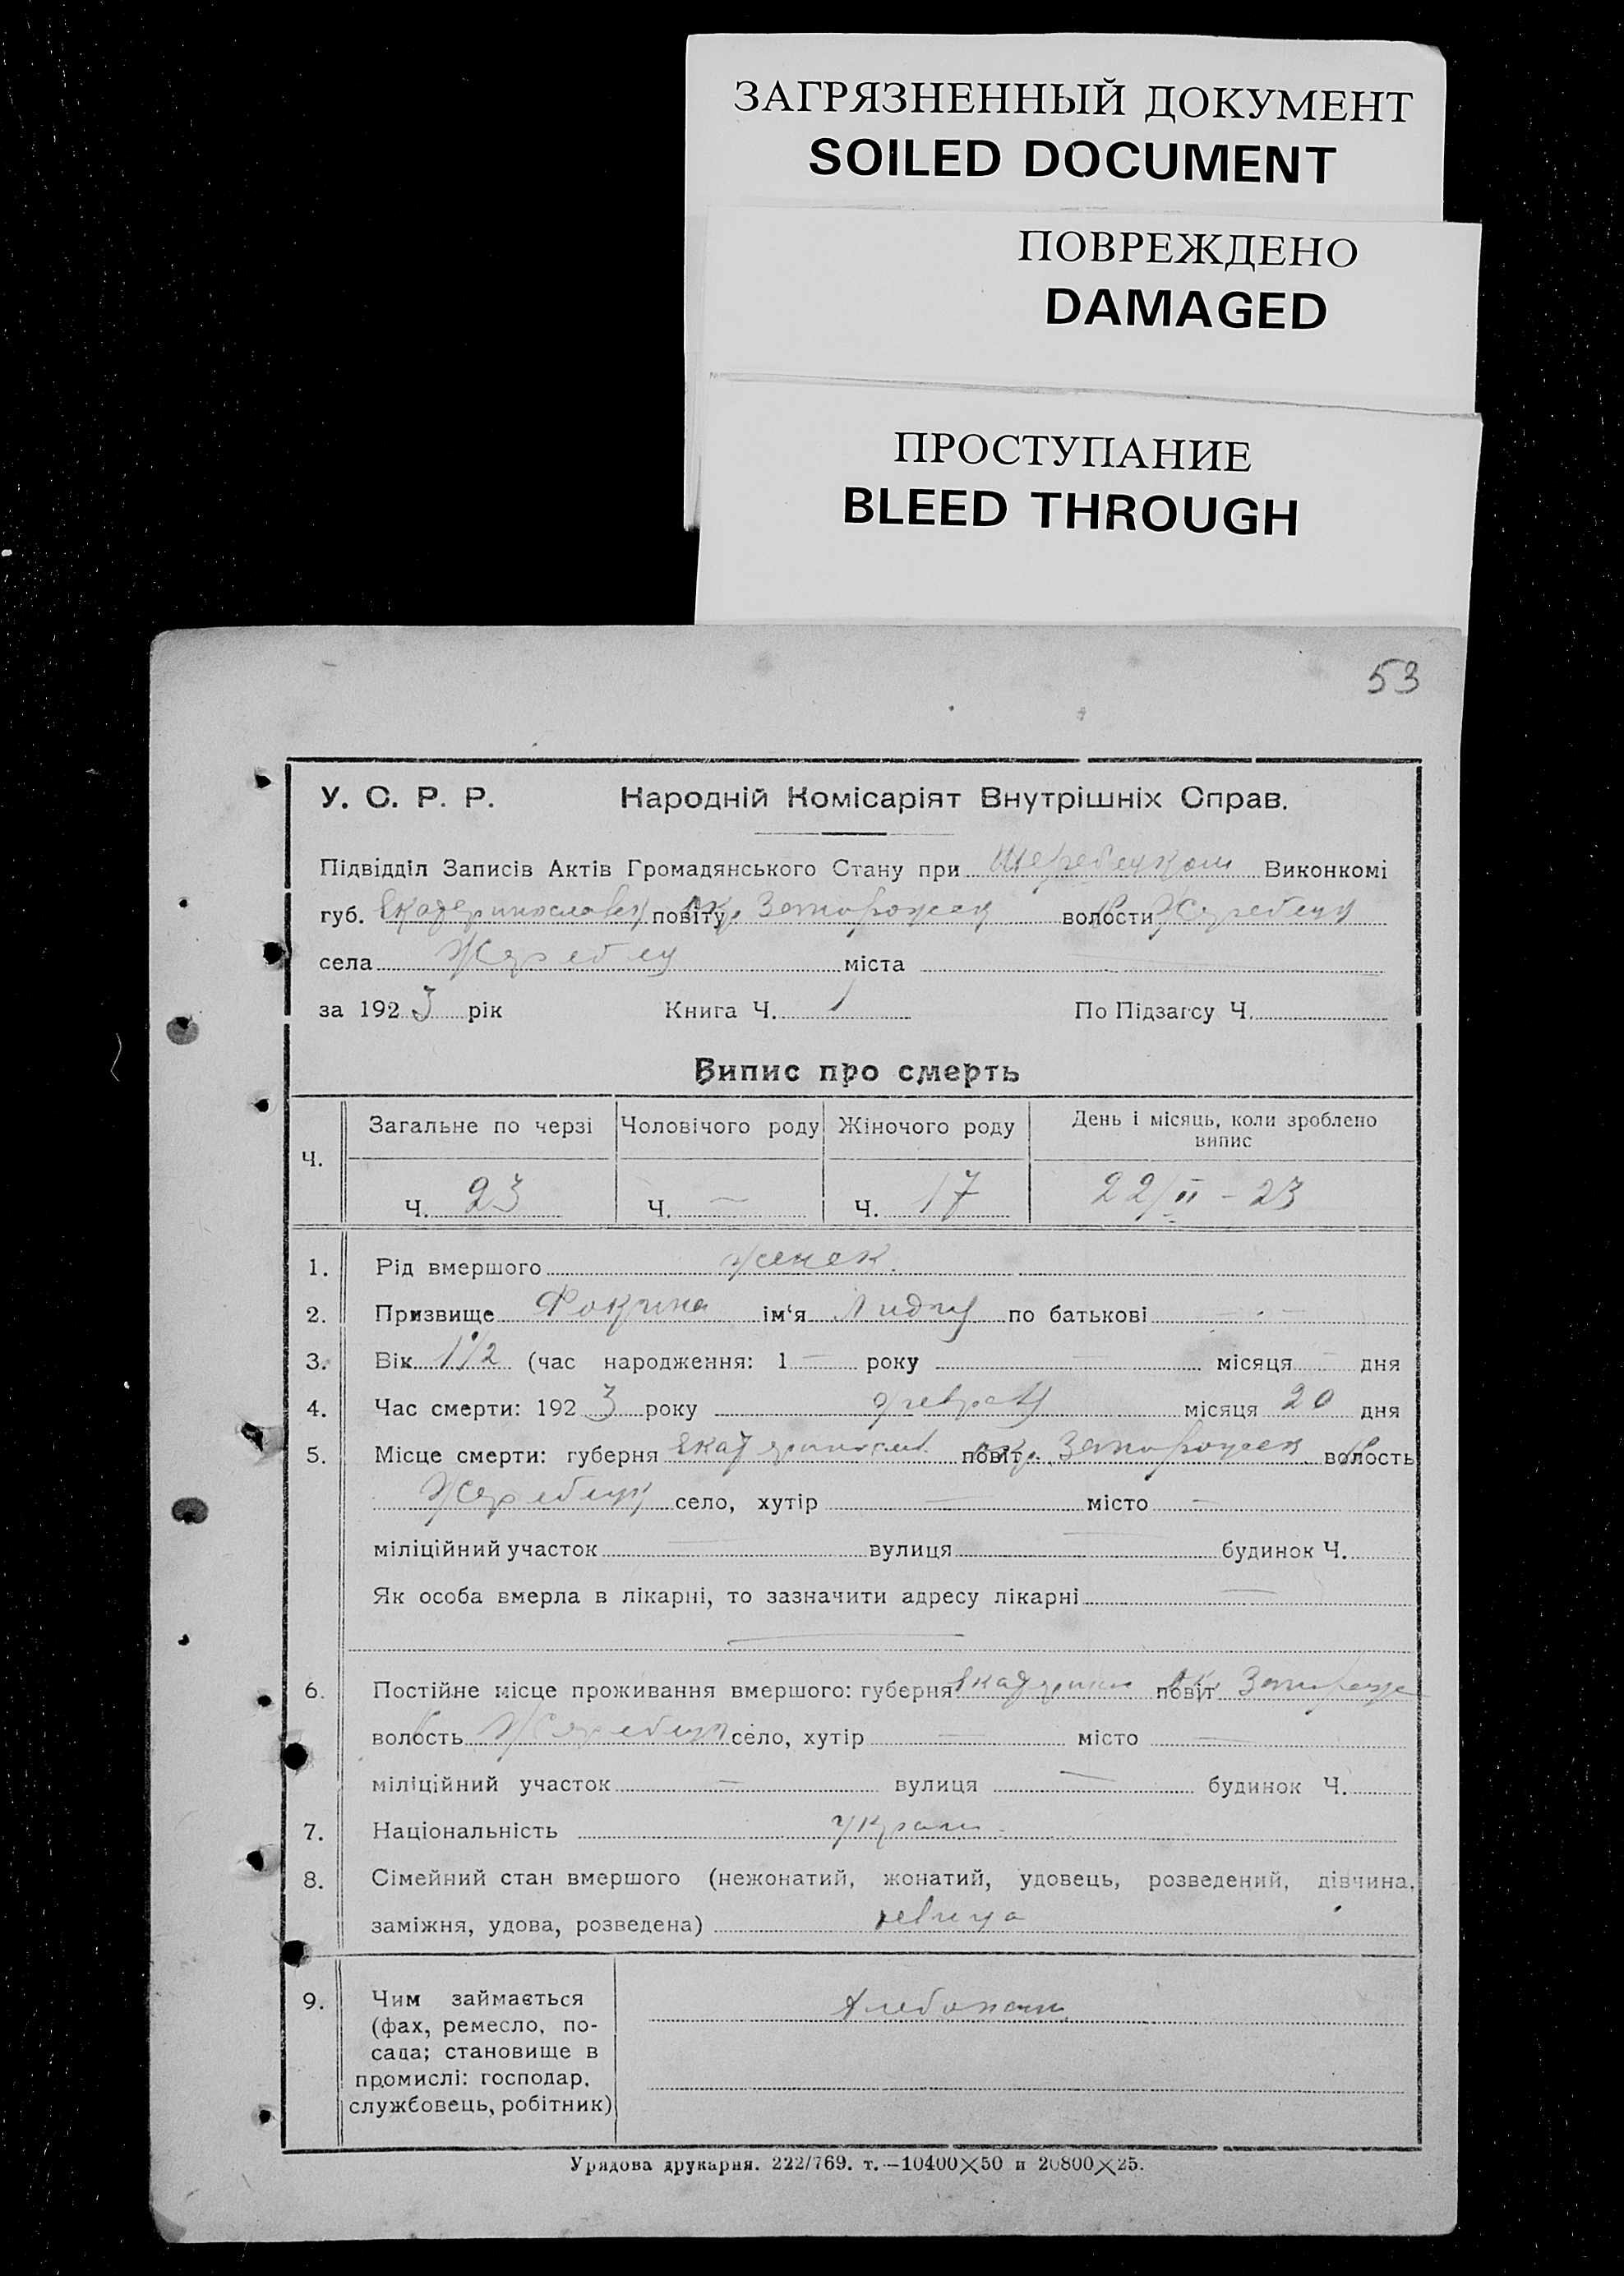 ЗАГРЯЗНЕННЫЙ ДОКУМЕНТ
SOILED DOCUMENT
ПОВРЕЖДЕНО
DAMAGED
ПРОСТУПАНИЕ
BLEED THROUGH
53
У. С. Р. Р. Народній Комісаріят Внутрішніх Справ.
Підвідділ Записів Актів Громадянського Стану при Виконкомі
губ. Екатеринославск повіту окр. Запорожск волости Жеребецк
села Жеребец міста
за 1923 рік Книга Ч. 1 По Підзагсу Ч.
Випис про смерть
Ч. Загальне по черзі Чоловічого роду Жіночого роду День і місяць, коли зроблено
випис
Ч. 23 Ч. — Ч. 17 22/II - 23
1. Рід вмершого женск.
2. Призвище Фокина ім‘я Лидия по батькові —
3. Вік 1 1/2 (час народження: 1 — року — місяця — дня
4. Час смерти: 1923 року февраля місяця 20 дня
5. Місце смерти: губерня Екатеринослав. повіт окр. Запорожск волость
Жеребецк село, хутір — місто —
міліційний участок — вулиця — будинок Ч.
Як особа вмерла в лікарні, то зазначити адресу лікарні —
6. Постійне місце проживання вмершого: губерня Екатерин повіт ок
волость Жеребецк село, хутір — місто —
міліційний участок — вулиця — будинок Ч.
7. Національність украин.
8. Сімейний стан вмершого (нежонатий, жонатий, удовець, розведений, дівчина,
заміжня, удова, розведена) девица
9. Чим займається
(фах, ремесло, по-
сада; становище в
промислі: господар,
службовець, робітник)
Хлебопаш
Урядова друкарня. 222/769. т.—10400×50 п 20800×25.